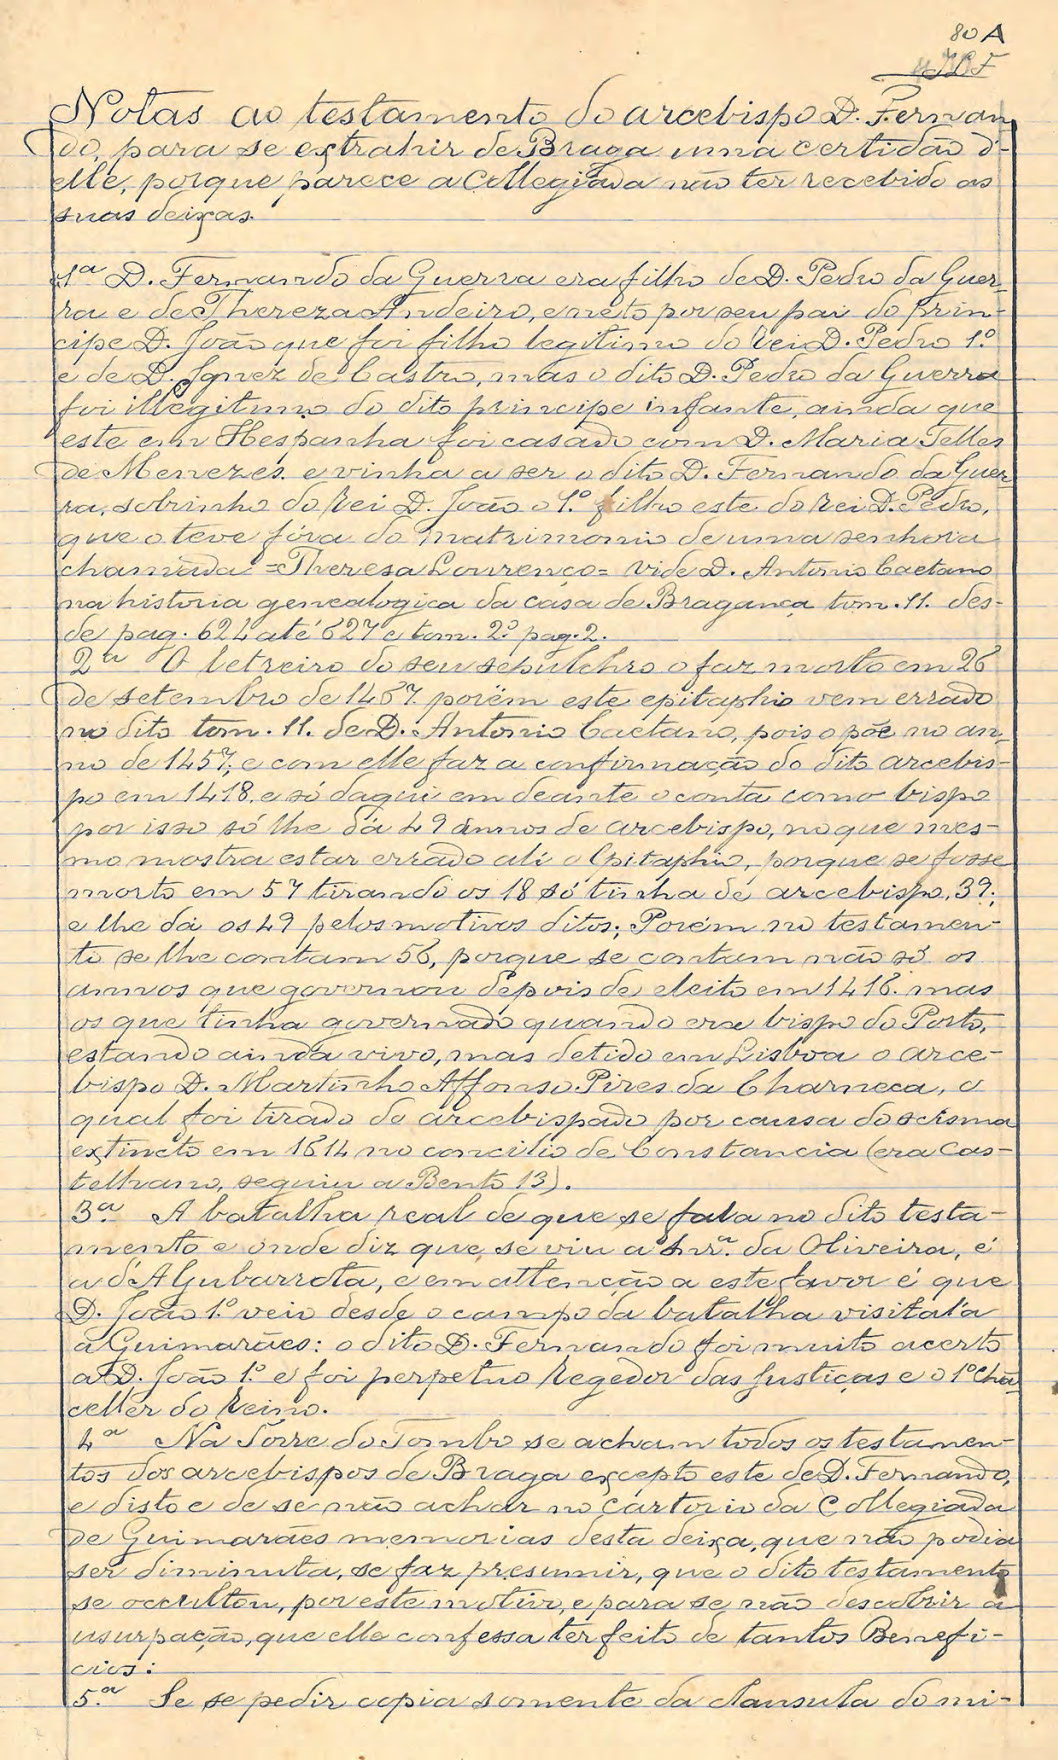 80 A
Notas ao testamento do arcebispo D. Fernan-
do, para se extrahir de Braga uma certidão d'-
elle, porque parece a Collegiada não ter recebido as
suas deixas.
1ª D. Fernando da Guerra era filho de D. Pedro da Guer-
ra e de Thereza Andeiro, e neto por seu pai do prin-
cipe D. João que foi filho legitimo do rei D. Pedro 1.º
e de D. Ignez de Castro, mas o dito D. Pedro da Guerra
foi illegitimo do dito principe infante, ainda que
este em Hespanha foi casado com D. Maria Telles
de Menezes. e vinha a ser o dito D. Fernando da Guer-
ra, sobrinho do rei D. João o 1.º filho este do rei D. Pedro,
que o teve fóra do matrimonio de uma senhora
chamada =Theresa Lourenço= vide D. Antonio Caetano
na historia genealogica da casa de Bragança tom. 11. des-
de pag. 624 até 627 e tom. 2.º pag. 2.
2ª O letreiro do seu sepulchro o faz morto em 26
de setembro de 1467. porém este epitaphio vem errado
no dito tom. 11. de D. Antonio Caetano, pois o põe no an-
no de 1457; e com elle faz a confirmação do dito arcebis-
po em 1418. e só daqui em deante o conta como bispo
por isso só lhe dá 49 annos de arcebispo, no que mes-
mo mostra estar errado ali o Epitaphio, porque se fosse
morto em 57 tirando os 18 só tinha de arcebispo. 39;
e lhe dá os 49 pelos motivos ditos; Porém no testamen-
to se lhe contam 56, porque se contam não só os
annos que governou depois de eleito em 1418. mas
os que tinha governado quando era bispo do Porto,
estando ainda vivo, mas detido em Lisboa o arce-
bispo D. Martinho Affonso Pires da Charneca, o
qual foi tirado do arcebispado por causa do scisma
extincto em 1814 no concilio de Constancia (era Cas-
telhano, seguiu a Bento 13).
3.ª A batalha real de que se fala no dito testa-
mento e onde diz que se viu a Snrª. da Oliveira, é
a d'Algubarrota, e em attenção a este favor é que
D. João 1.º veio desde o campo da batalha visital'a
a Guimarães: o dito D. Fernando foi muito acerto
a D. João 1.º e foi perpetuo Regedor das Justiças e o 1º Chã-
celler do Reino.
4.ª Na Torre do Tombo se acham todos os testamen-
tos dos arcebispos de Braga excepto este de D. Fernando,
e disto e de se não achar no cartorio da Collegiada
de Guimarães memorias desta deixa, que não podia
ser diminuta, se faz presumir, que o dito testamento
se occultou, por este motivo, e para se não descobrir a
usurpação, que elle confessa ter feito de tantos Benefi-
cios:
5.ª Se se pedir copia somente da clausula do mi-